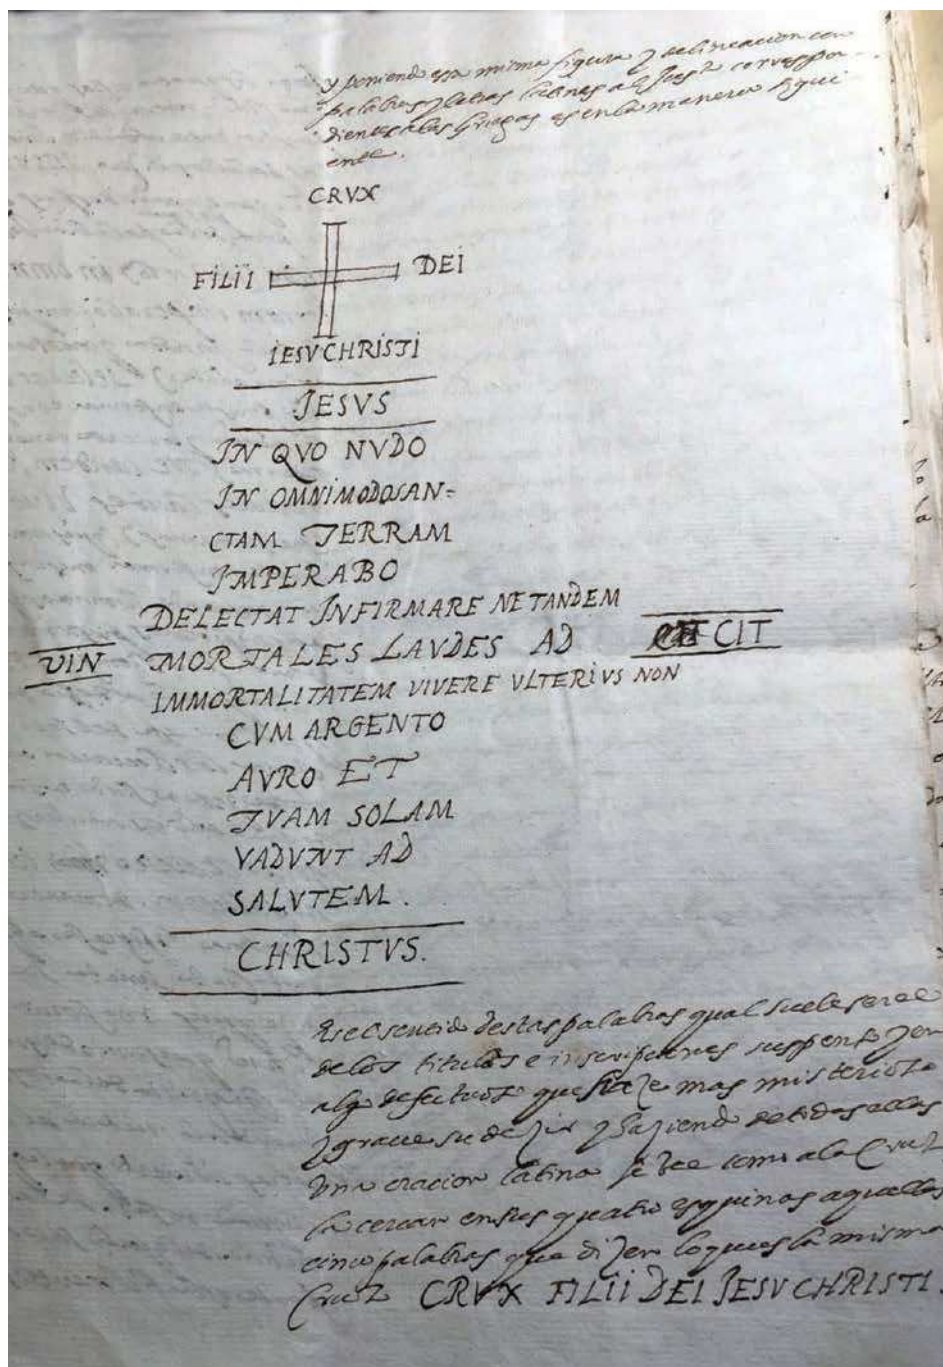 y poniendo essa misma figura y delineacion con
palabras y letras latinas al justo correspon-
dientes a las griegas es en la manera sigui
ente.
CRVX
FILII DEI
IESV CHRISTI
JESVS
IN QVO NVDO
IN OMNIMODO SAN=
CTAM TERRAM
IMPERABO
DELECTAT INFIRMARE NE TANDEM
VIN MORTALES LAVDES AD CIT
IMMORTALITATEM VIVERE VLTERIVS NON
CVM ARGENTO
AVRO ET
TVAM SOLAM
VADVNT AD
SALVTEM.
CHRISTVS.
es el sentido destas palabras qual suele ser el
de los titulos e inscripciones suspenso y en
algo defectuoso que haze mas misterioso
y graue su dezir y haziendo de todas ellas
una oracion latina se vee como a la Cruz
la cercan en sus quatro esquinas aquellas
cinco palabras que dizen lo que es la misma
Cruz CRVX FILII DEI JESV CHRISTI.